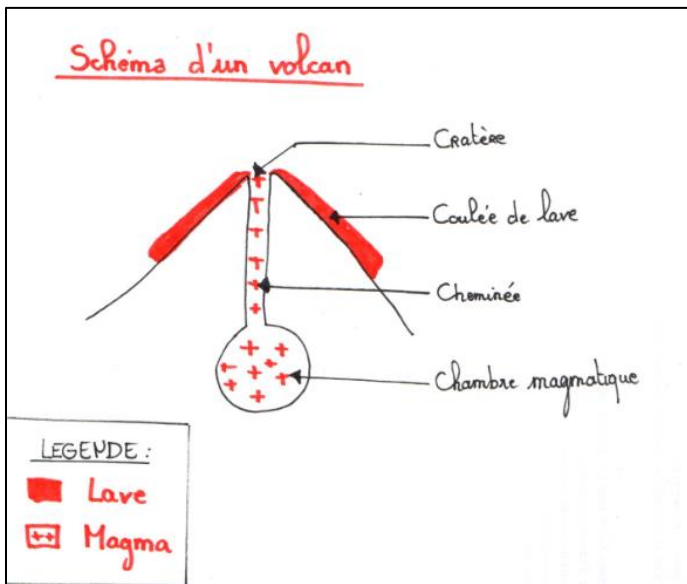 Schéma d'un volcan
Cratère
Coulée de lave
Cheminée
Chambre magmatique
LEGENDE :
Lave
++ Magma